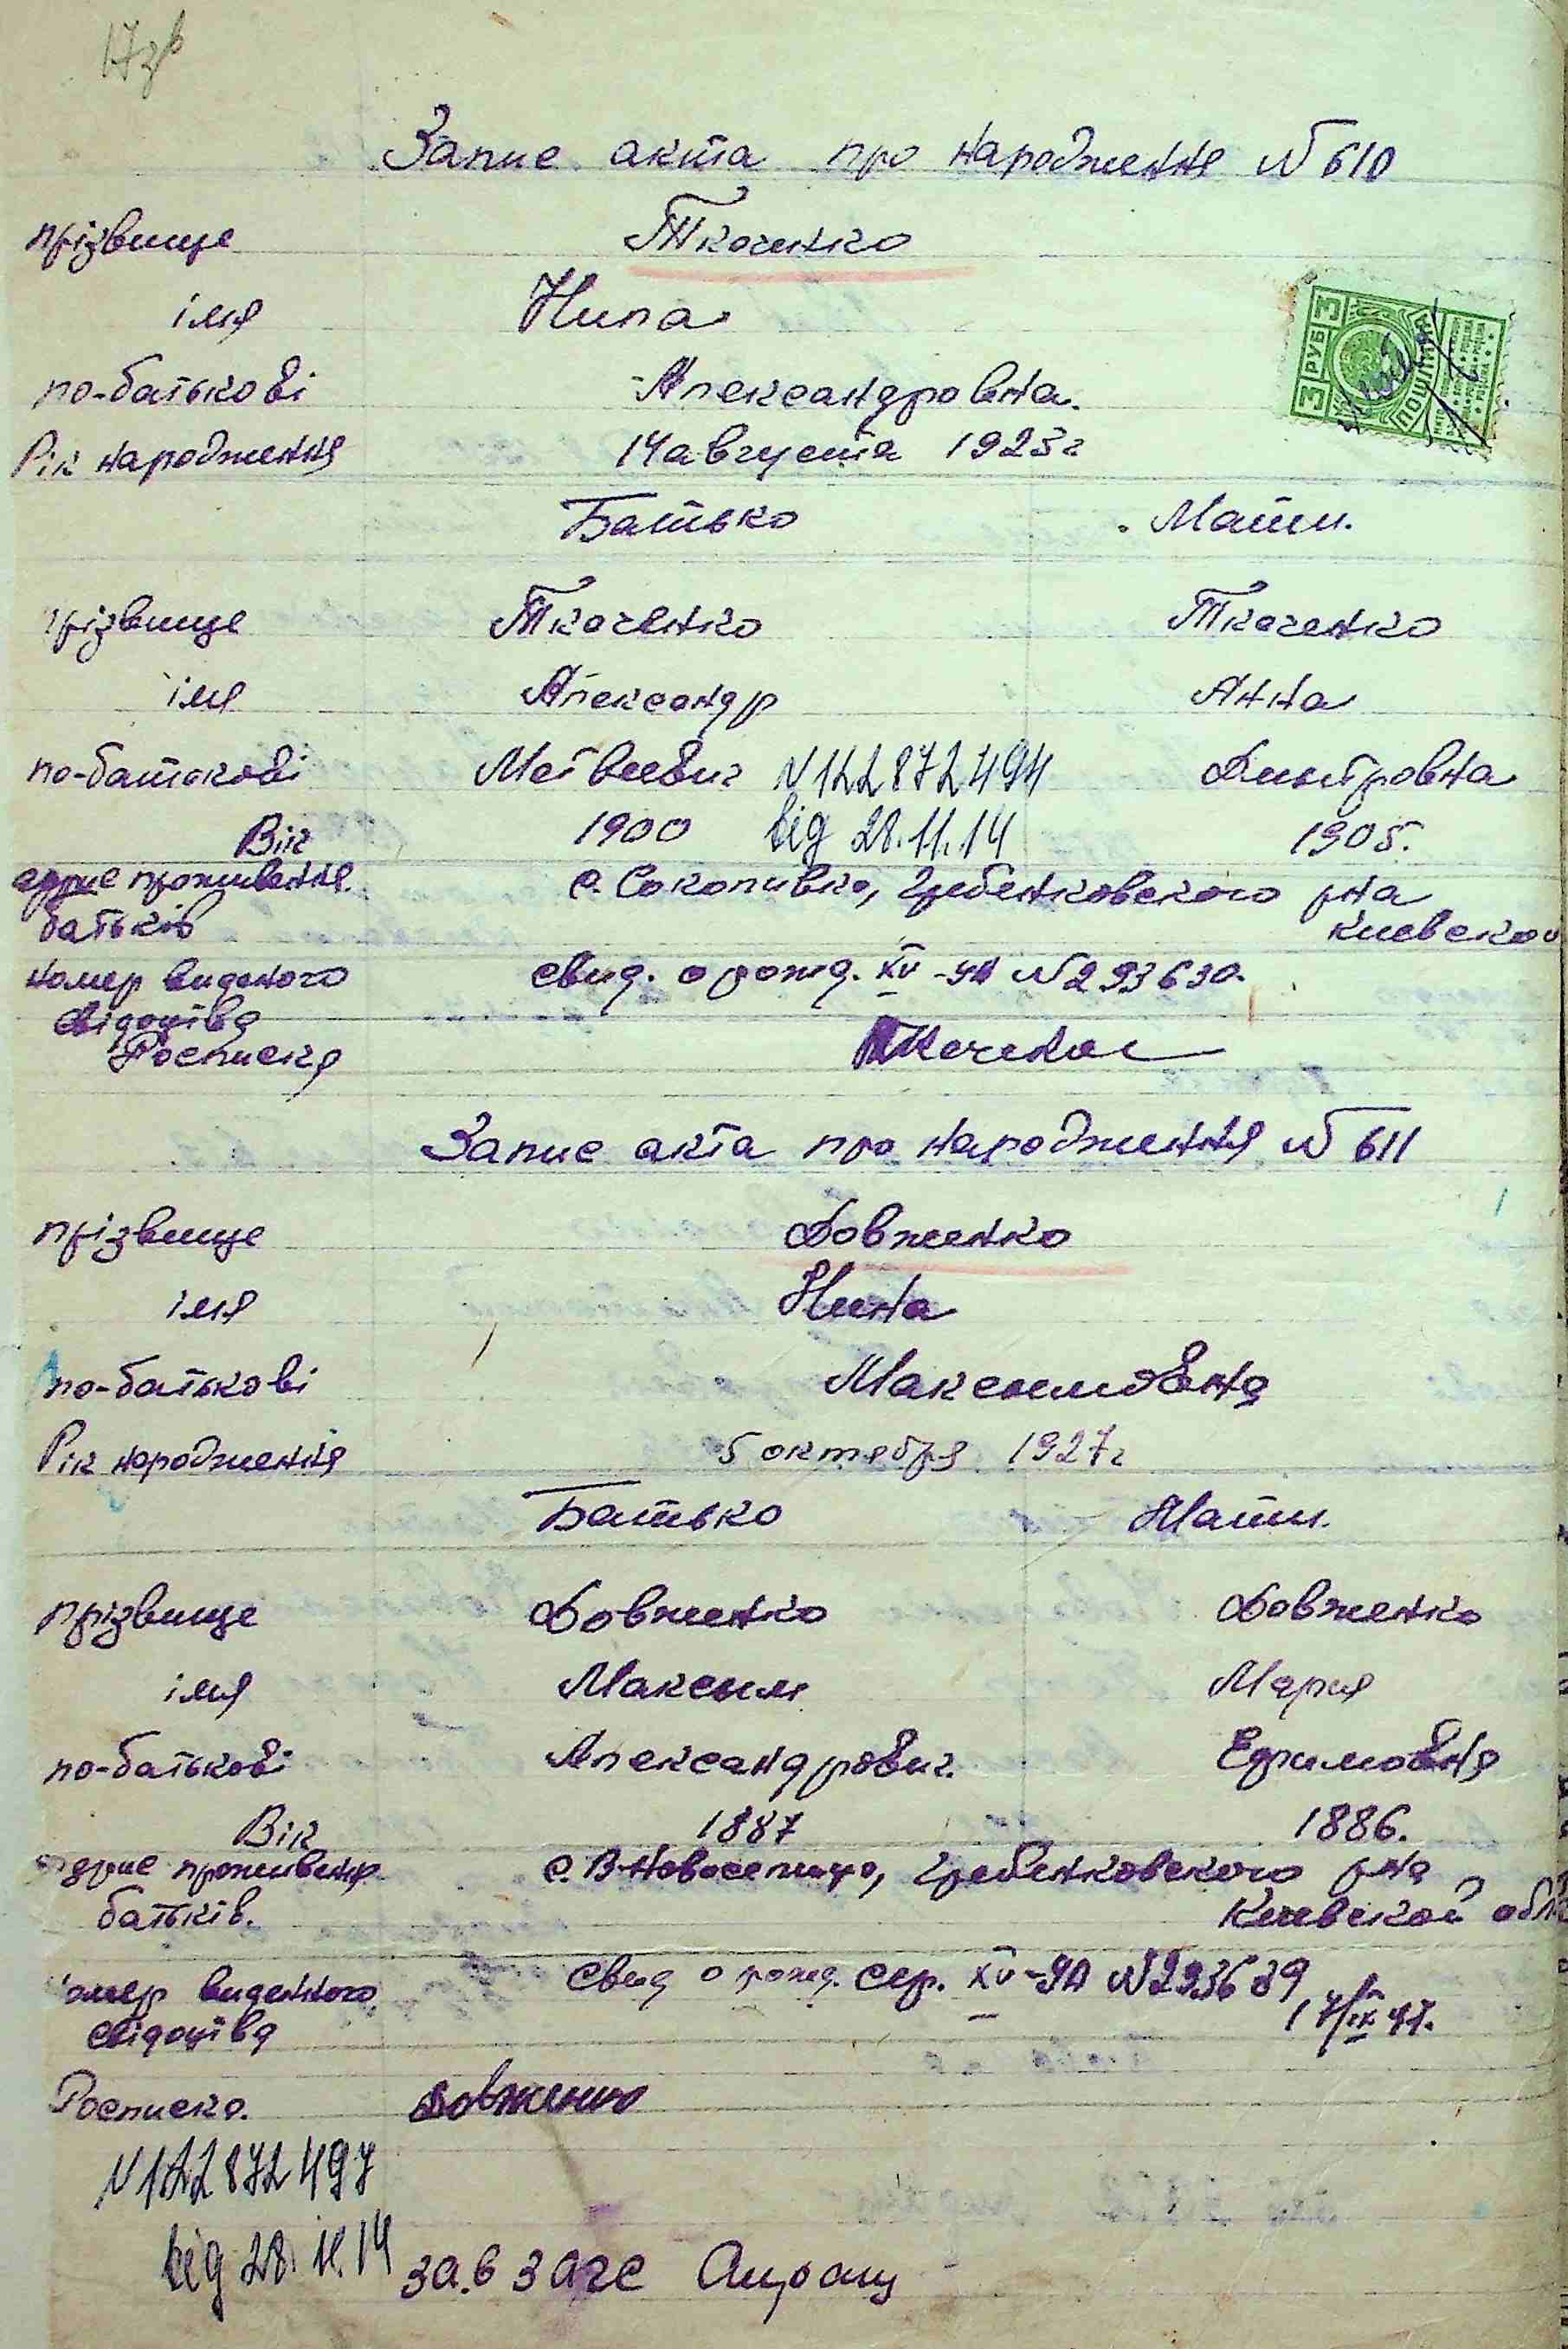 17зв
Запис акта про народження №610
прізвище Ткаченко
імя Нина
по-батькові Александровна.
Рік народження 14 августа 1923г
3 РУБ 3
ПОШЛИНА
Батько Мати.
прізвище Ткаченко Ткаченко
імя Александр Анна
по-батькові Матвеевич N122872494 Дмитровна
Вік 1900 від 28.11.14 1905.
адрис проживання с. Соколивка, Гребенковского р-на
батьків Киевской
номер виданого свид. о рожд. XV-УА №293630.
свідоцтва
Росписка Ткаченко
Запис акта про народження №611
прізвище Довженко
імя Нина
по-батькові Максимовна
Рік народження 5 октября 1927г
Батько Мати.
прізвище Довженко Довженко
імя Максим Мария
по-батькові Александрович. Ефимовна
Вік 1887 1886.
адрис проживання с. В-Новоселица, Гребенковского р-на
батьків. Киевской обл
номер виданного свид о рожд. сер. XV-УА №293639
свідоцтва 17/IX 47.
Росписка. Довженко
N122872497
від 28.11.14 зав загс